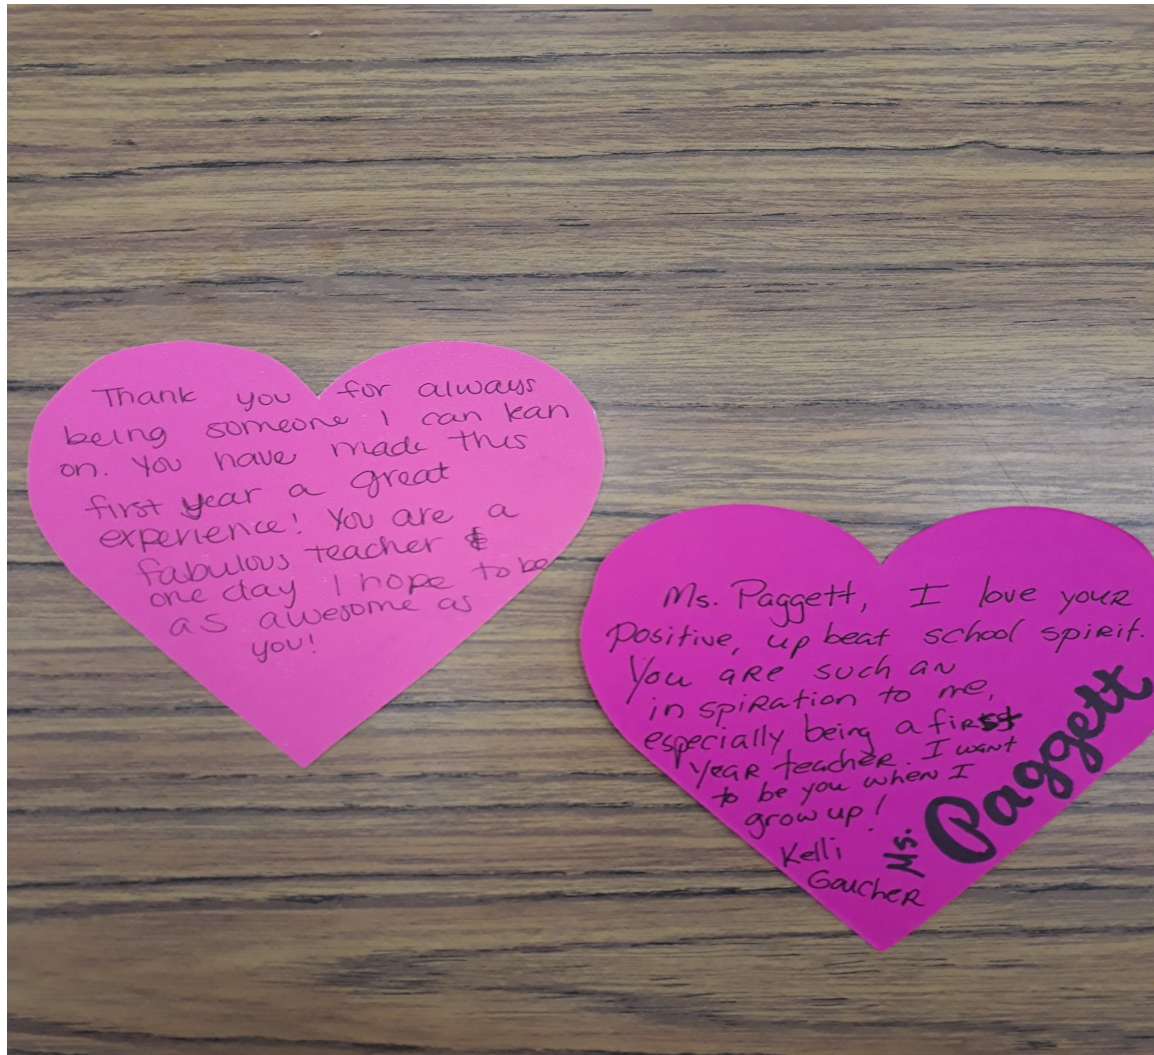 Thank you for always
being someone I can lean
on. You have made this
first year a great
experience! You are a
fabulous teacher &
one day I hope to be
as awesome as
you!
Ms. Paggett, I love your
positive, up beat school spirit.
You are such an
inspiration to me,
especially being a first
year teacher. I want
to be you when I
grow up!
Kelli
Goucher
Ms. Paggett